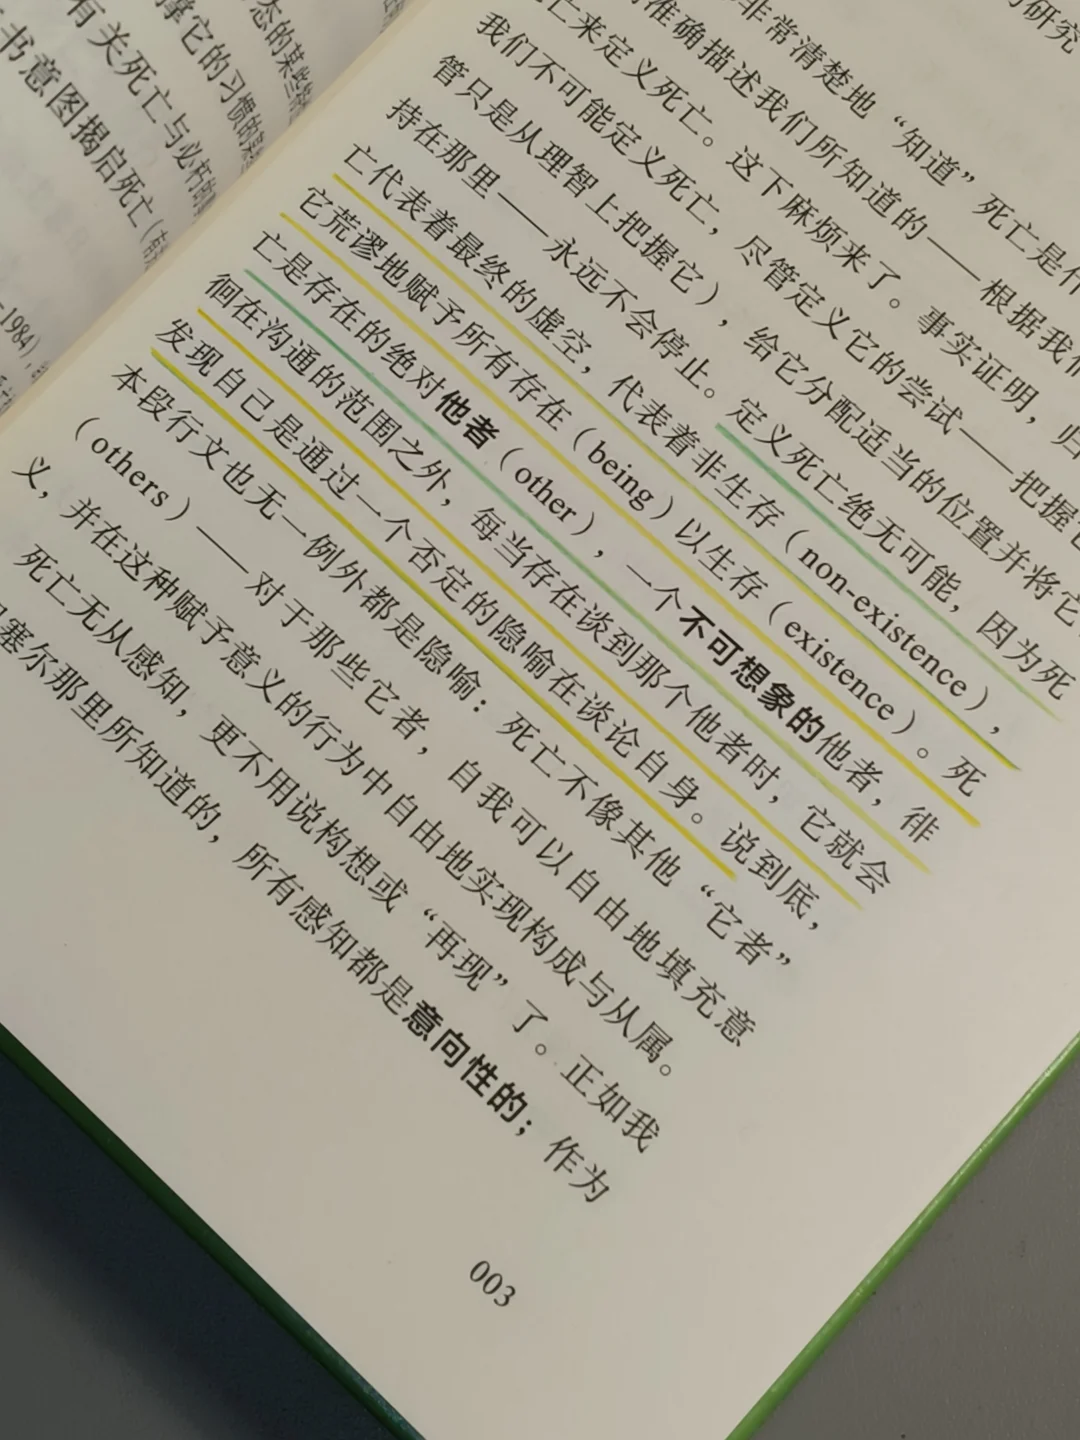 态的某些
撑它的习惯的
有关死亡与必朽的
书意图揭启死亡
-1984)
的研究
非常清楚地“知道”死亡是什
准确描述我们所知道的——根据我们
亡来定义死亡。这下麻烦来了。事实证明,归
我们不可能定义死亡,尽管定义它的尝试——把握它
管只是从理智上把握它),给它分配适当的位置并将它
持在那里——永远不会停止。定义死亡绝无可能,因为死
亡代表着最终的虚空,代表着非生存(non-existence),
它荒谬地赋予所有存在(being)以生存(existence)。死
亡是存在的绝对他者(other),一个不可想象的他者,徘
徊在沟通的范围之外,每当存在谈到那个他者时,它就会
发现自己是通过一个否定的隐喻在谈论自身。说到底,
本段行文也无一例外都是隐喻:死亡不像其他“它者”
(others)——对于那些它者,自我可以自由地填充意
义,并在这种赋予意义的行为中自由地实现构成与从属。
死亡无从感知,更不用说构想或“再现”了。正如我
塞尔那里所知道的,所有感知都是意向性的;作为
003